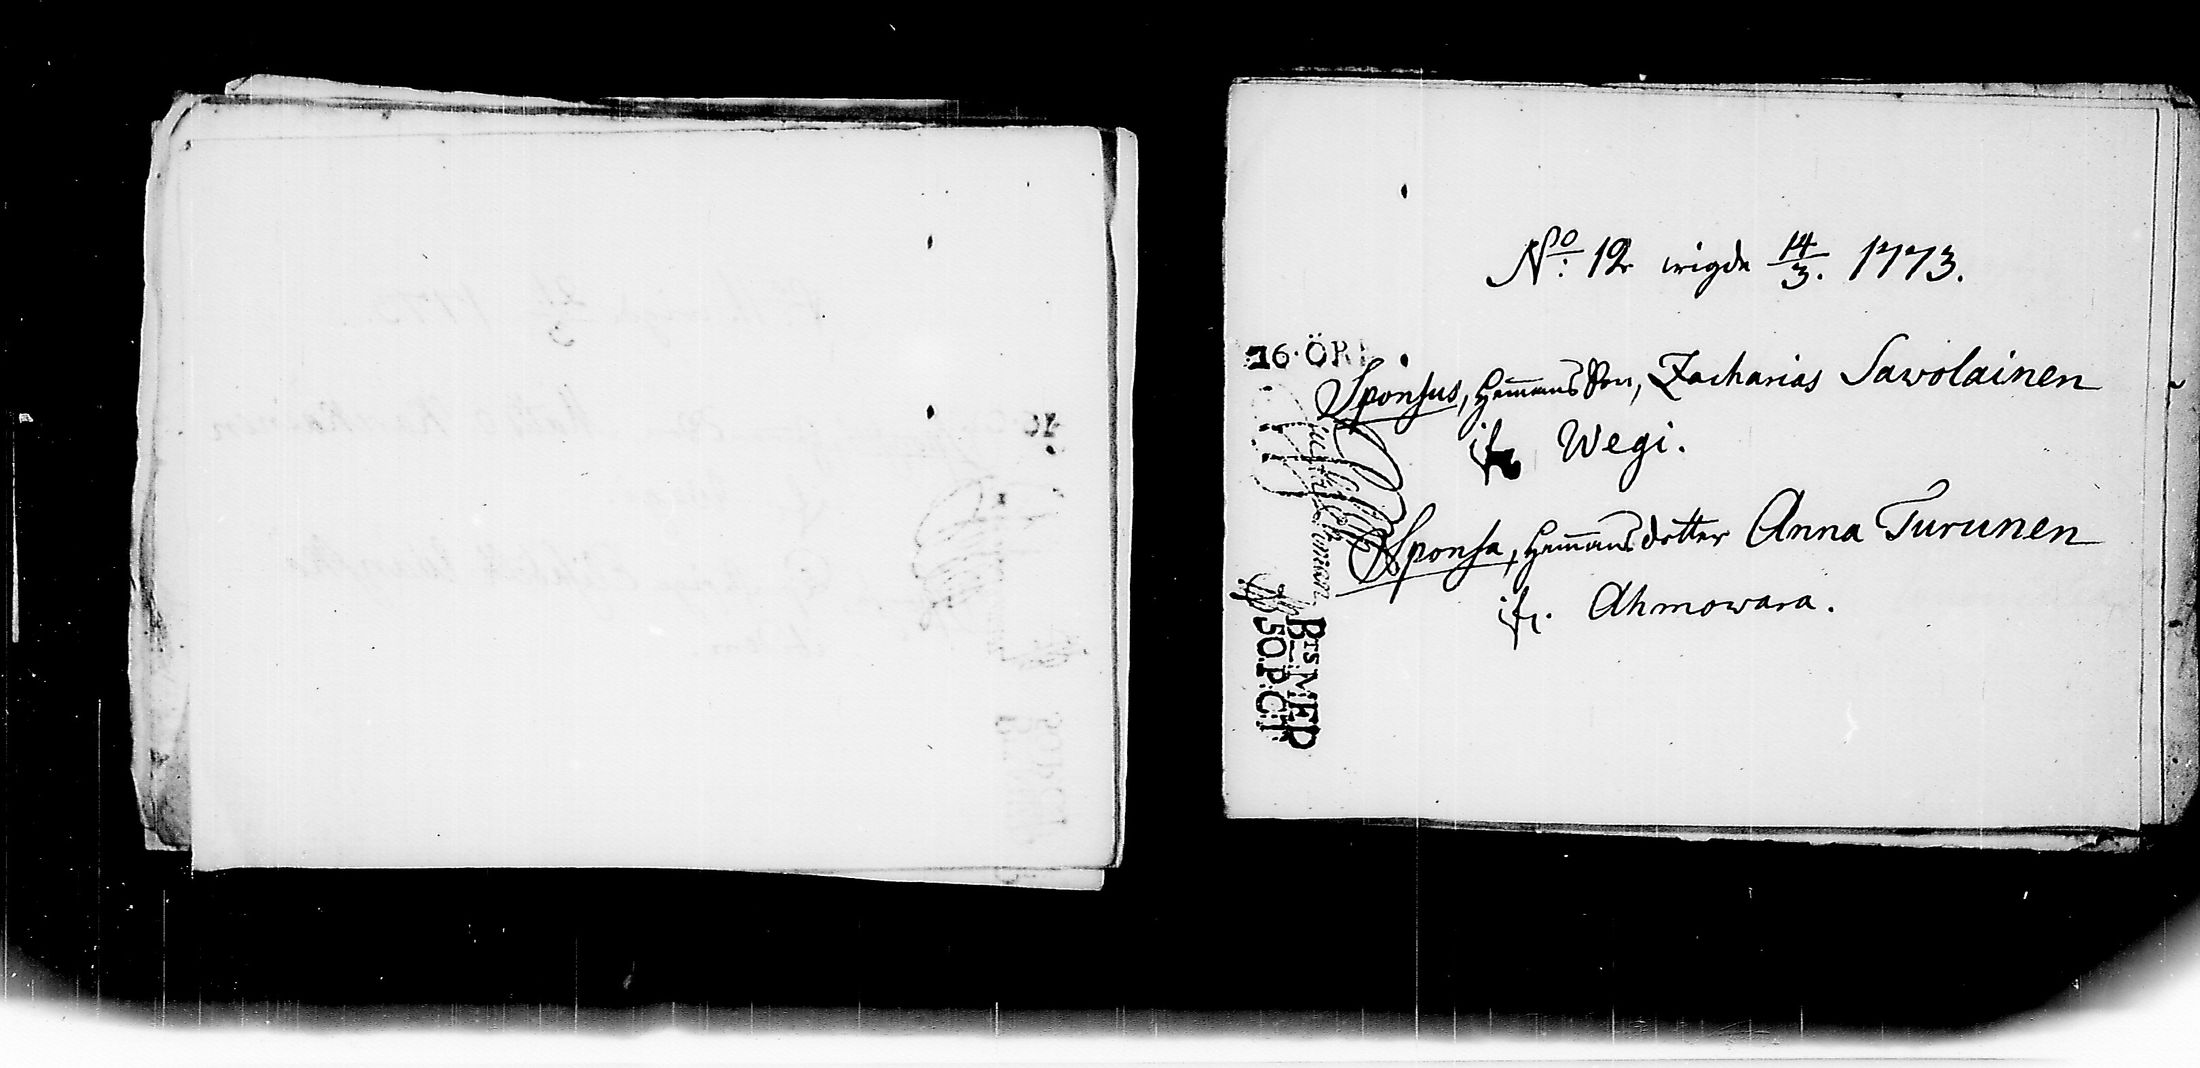 No: 12 wigde 14/3. 1773.
16. ÖR
Sponsus, Hem̄ans Son, Zacharias Sawolainen
ifr Wegi.
Sponsa, Hem̄ans dotter Anna Turunen
ifr. Ahmowara.
BTS MED
50. P: CT